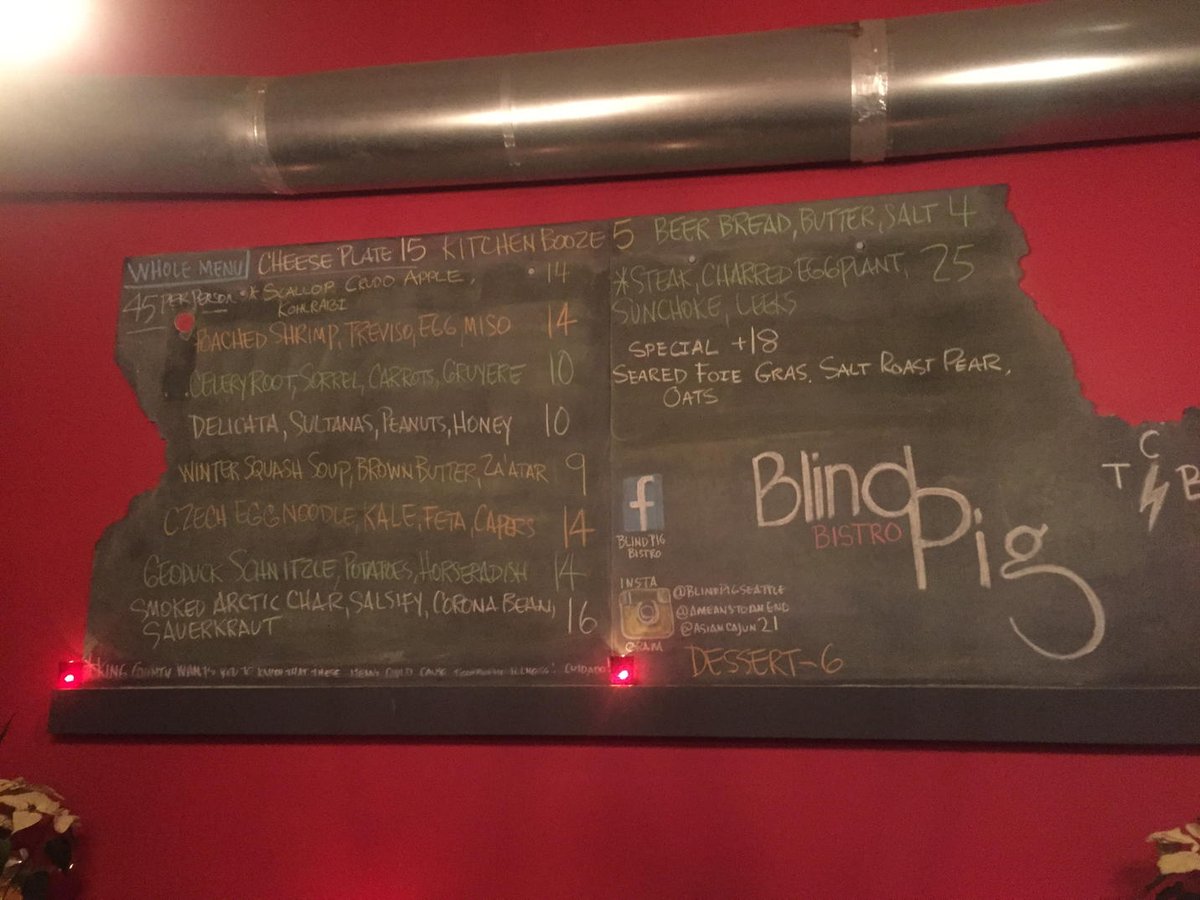 WHOLE MENU CHEESE PLATE 15 KITCHEN BOOZE 5
45 PER PERSON * SCALLOP CRUDO APPLE, 14
KOHLRABI
POACHED SHRIMP, TREVISO, EGG MISO 14
CELERY ROOT, SORREL, CARROTS, GRUYERE 10
DELICATA, SULTANAS, PEANUTS, HONEY 10
WINTER SQUASH SOUP, BROWN BUTTER, ZA'ATAR 9
CZECH EGG NOODLE, KALE, FETA, CAPERS 14
GEODUCK SCHNITZLE, POTATOES, HORSERADISH 14
SMOKED ARCTIC CHAR, SALSIFY, CORONA BEAN, 16
SAUERKRAUT
*KING COUNTY WANTS YOU TO KNOW THAT THESE ITEMS COULD CAUSE ILLNESS! CUIDADO
BEER BREAD, BUTTER, SALT 4
*STEAK, CHARRED EGGPLANT, 25
SUNCHOKE, LEEKS
SPECIAL +18
SEARED FOIE GRAS, SALT ROAST PEAR,
OATS
f
BLIND PIG
BISTRO
Blind Pig
BISTRO
INSTA
GRAM
@BLINDPIGSEATTLE
@AMEANSTOANEND
@ASIANCAJUN21
DESSERT-6
C
T B